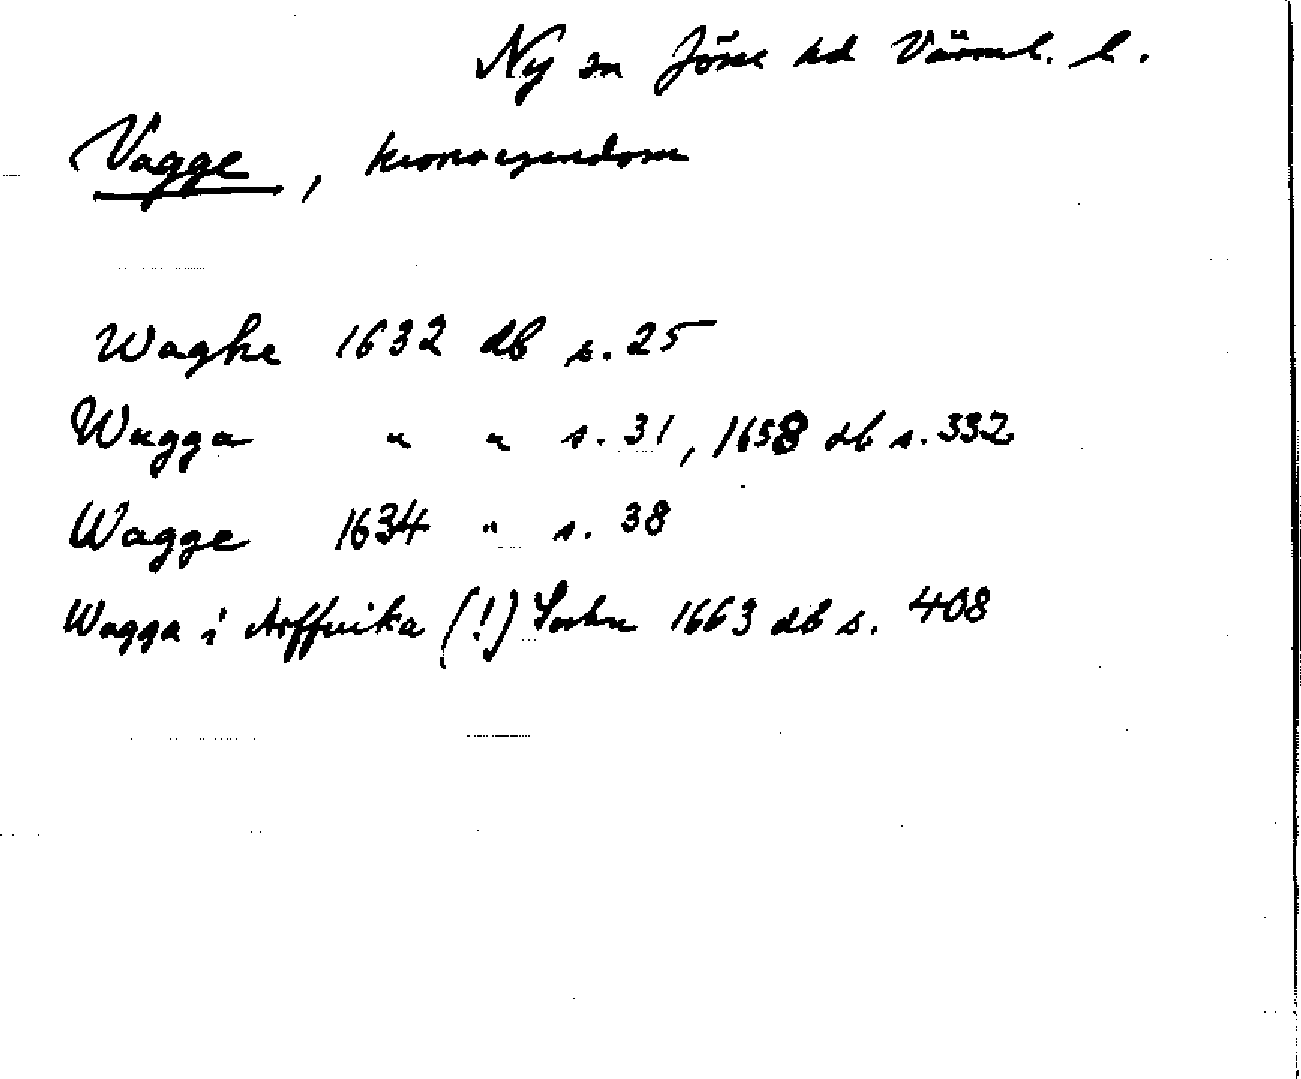 Ny sn Jösse hd Värml. l.
Vagge, kronoegendom
Waghe 1632 db s. 25
Wagga " " s. 31, 1658 db s. 332
Wagge 1634 " s. 38
Wagga i Arffuika (!) Sochn 1663 db s. 408